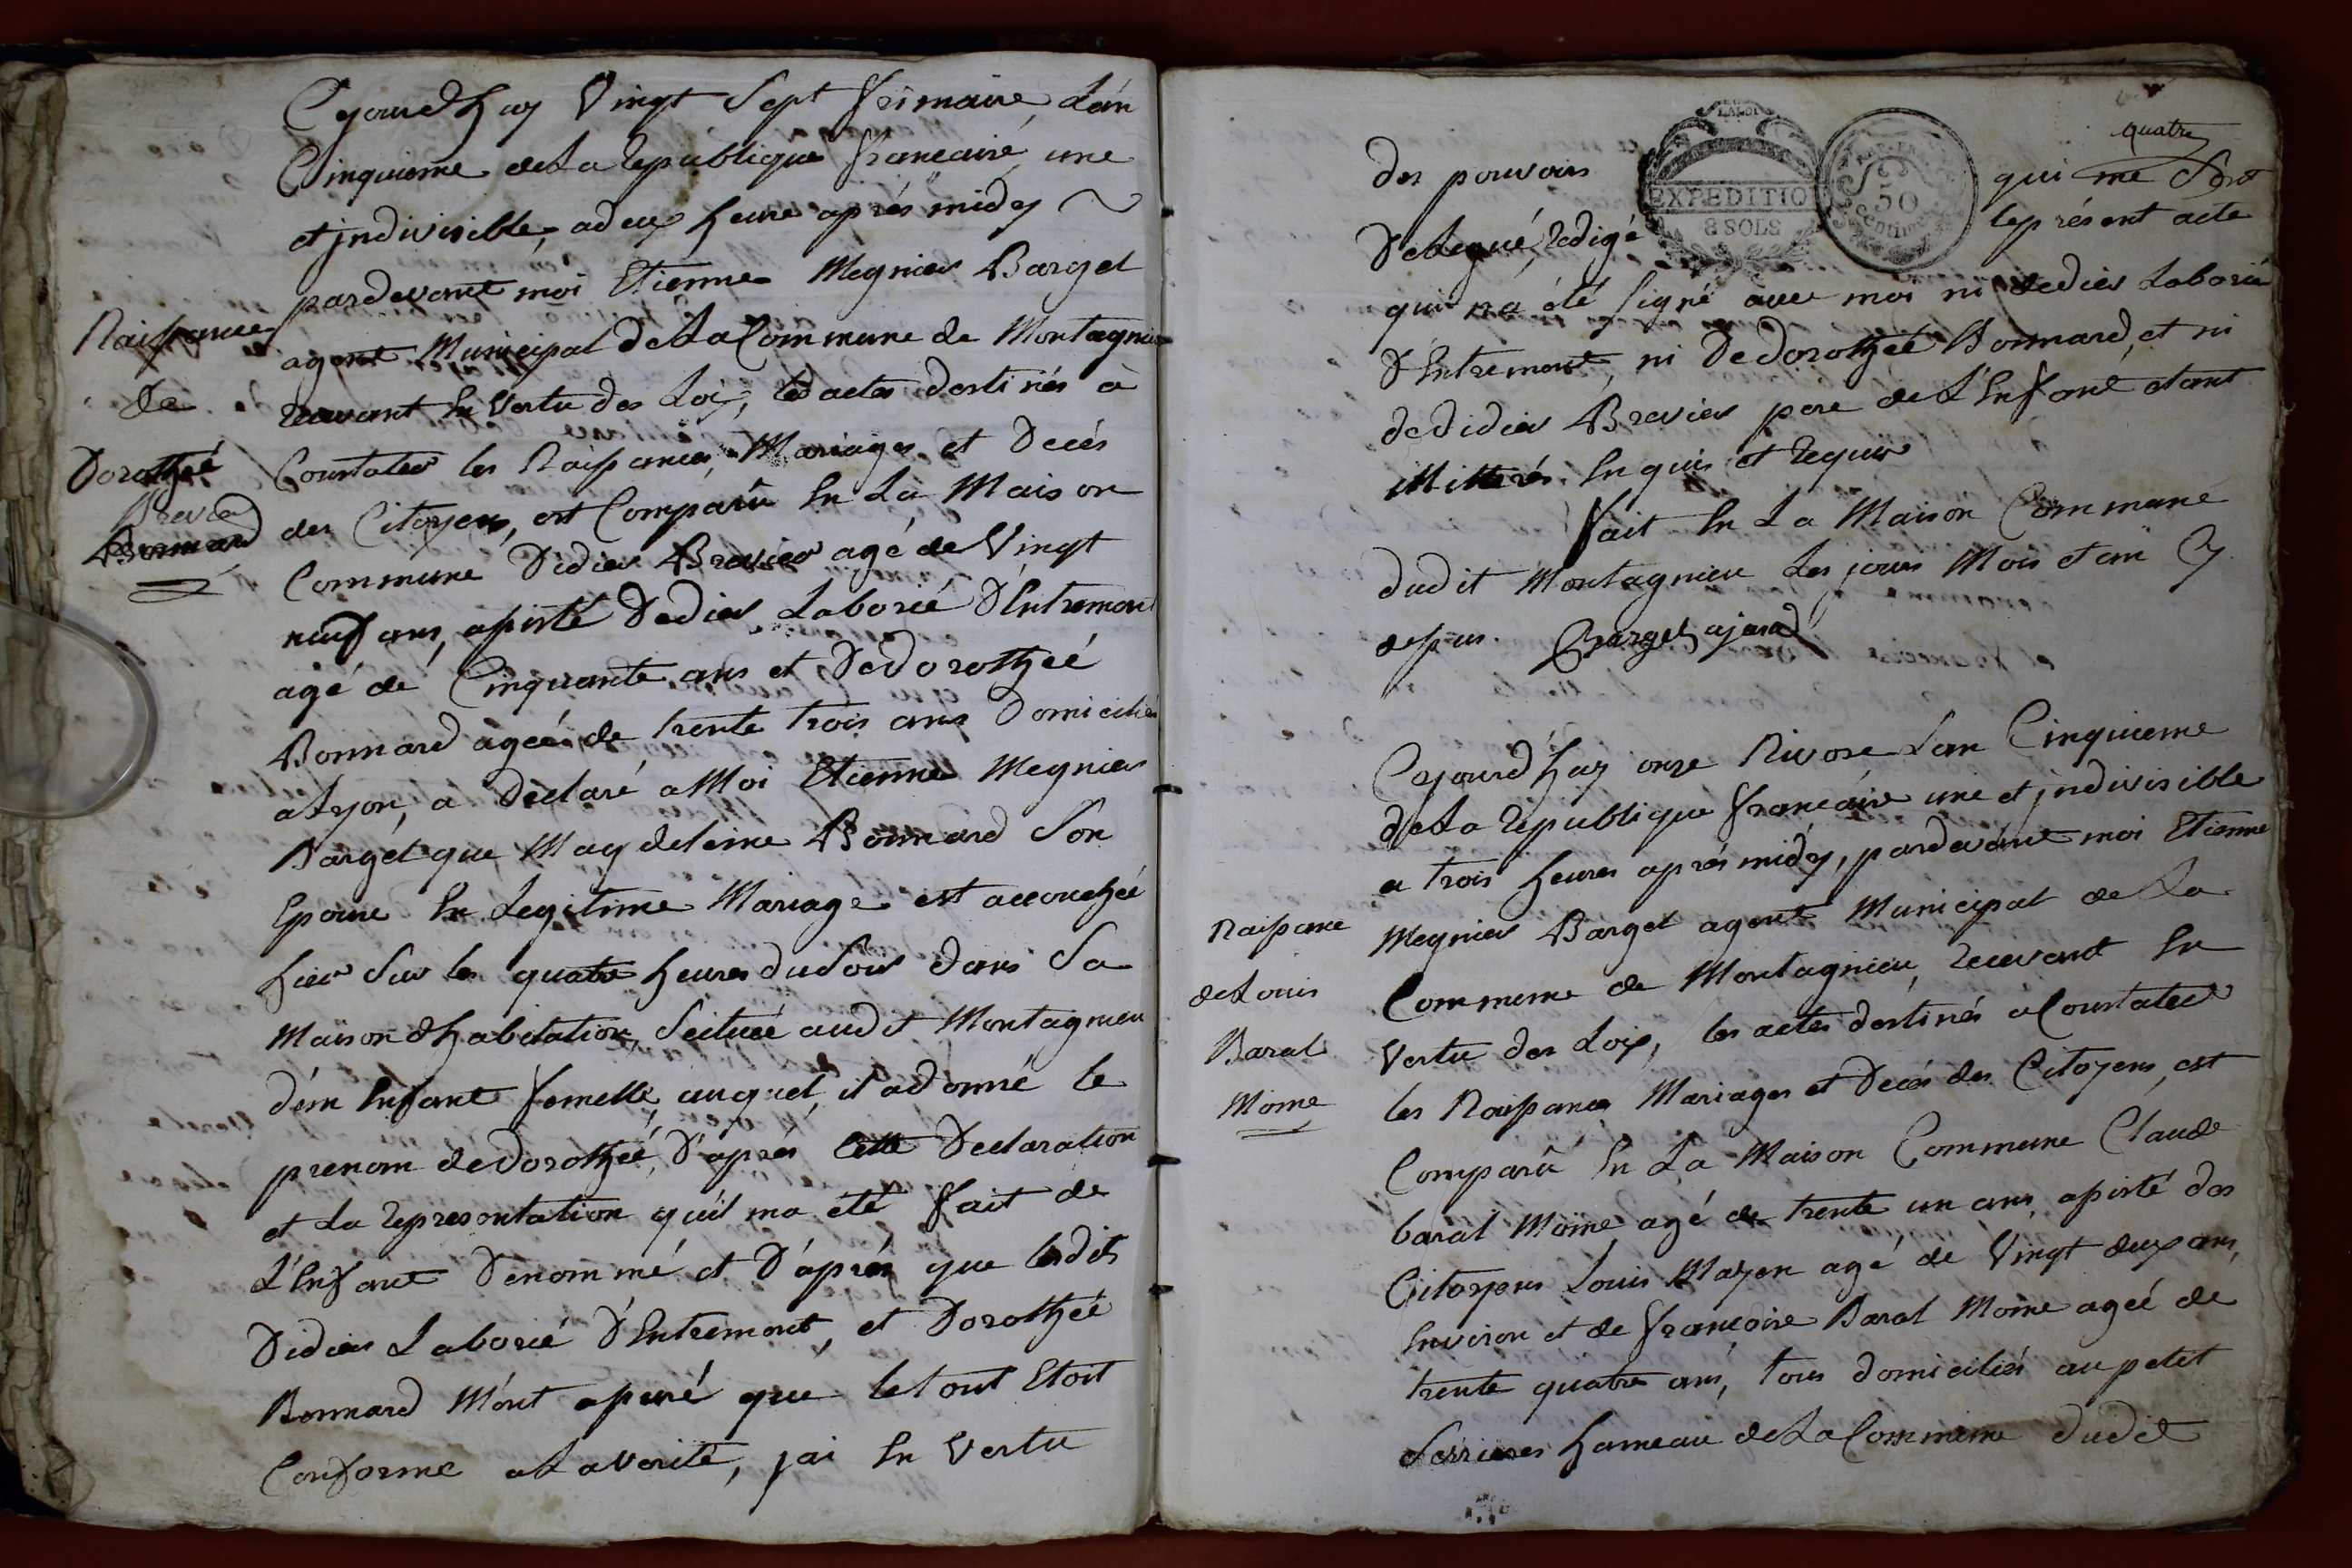 Cejourdhuy Vingt Sept frimaire, L'an
Cinquieme de La republique francaise, une
et jndivisible, a deux heure aprés midy
pardevant moi Etienne Meynier Barget
agent Municipal de La Commune de Montagnieu
recevant En Vertu des Loix, les actes destinés à
Constater les Naissances, Mariages et Decés
des Citoyens, est Comparu En La Maison
Commune Didier Brevier agé de Vingt
neuf ans, assisté Dedier Laborié D'Entremont
agé de Cinquante ans et De Dorothée
Bonnard agée de trente trois ans Domiciliés
a Lyon, a Déclaré a Moi Etienne Meynier
Barget que Magdeleine Bonnard Son
Epouse En Legitime Mariage est accouchée
hier Sur les quatre heures du Soir dans Sa
Maison dhabitation, Scituée audit Montagnieu
d'un Enfant femelle, auquel, il adonné le
prenom de Dorothée, D'aprés Cette Declaration
et La representation qu'il ma été fait de
L'Enfant Dénommé et D'aprés que lesdits
Didier Laborié D'Entremont, et Dorothée
Bonnard M'ont assuré que le tout Etoit
Conforme a La verité, jai En Vertu
Naissance
de
Dorothée
Brevier
Bonnard
quatre
des pouvoirs qui me Sont
EXPEDITIO
8 SOLS
50
Centimes
Delegué, Redigé le présent acte
qui na été signé avec moi ni Dedier Laborié
D'Entremont, ni De Dorothée Bonnard, et ni
de Didier Brevier pere de L'Enfant etant
illittérés. Enquis et Requis
Fait En La Maison Commune
dudit Montagnieu Les jours Mois et an Cy
dessus. Barget ajand
Cejourd'huy onze Nivose Lan Cinquieme
de La republique francaise une et jndivisible
a trois heures aprés midy, pardevant moi Etienne
Meynier Barget agent Municipal de La
Commune de Montagnieu, recevant En
Vertu des Loix, les actes destinés a Constater
les Naissances Mariages et Decés des Citoyens, est
Comparu En La Maison Commune Claude
baral Moine agé de trente un ans, assisté des
Citoyens Louis Mayen agé de Vingt deux ans,
Environ et de francoise Baral Moine agée de
trente quatre ans, tous domiciliés au petit
Serrieres hameau de La Commune dudit
Naissance
de Louis
Baral
Moine